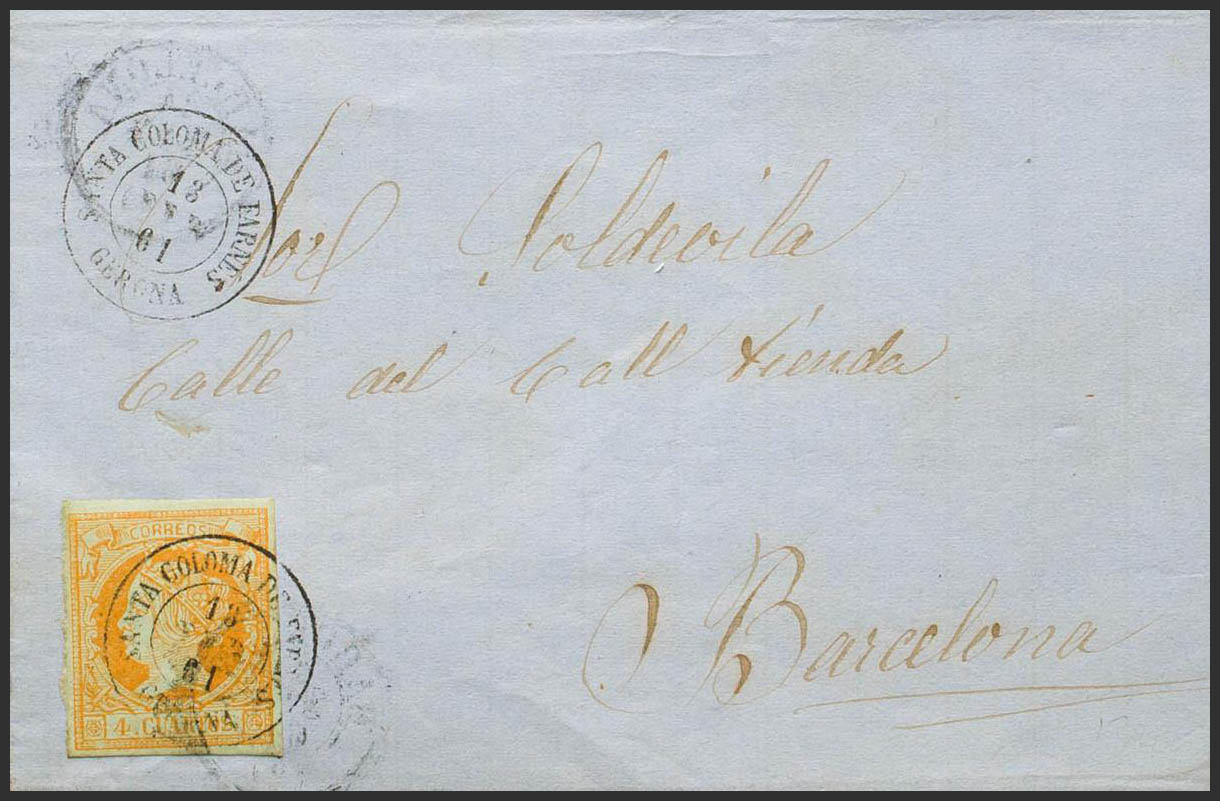 SANTA COLOMA DE FARNÉS
18
61
GERONA
Sor Soldevila
Calle del Call tienda
Barcelona
CORREOS
SANTA COLOMA DE
18
61
4 CUARTOS